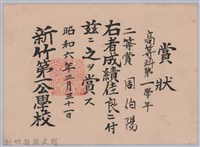 賞狀
高等科第一學年
二等賞 周伯陽
右者成績佳良ニ付
茲ニ之ヲ賞ス
昭和六年三月三十一日
新竹第一公學校